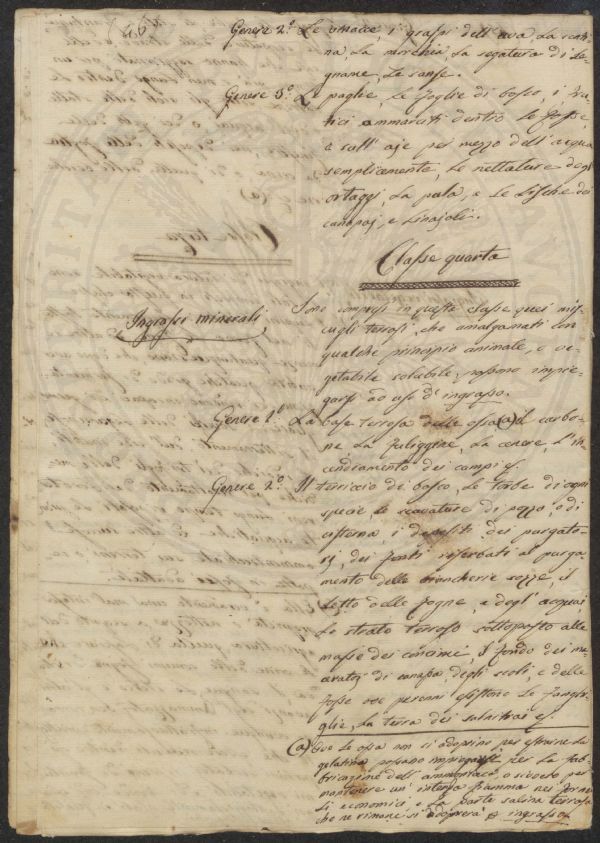 (46)
Genere 2.° Le vinacce, i graspi dell'uva, La senti-
na, La morchia, La segatura di Le-
gname, Le sanse.
Genere 3.° Le paglie, Le foglie di bosco, i fru-
tici ammarciti dentro Le fosse,
e sull'aje per mezzo dell'acqua
semplicemente, Le nettature degl'
ortaggi, La pula, e Le Lische dei
canapaj, e Linajoli.
Classe quarta
Ingrassi minerali
Sono compresi in questa classe quei mis-
cugli terrosi, che amalgamati con
qualche principio animale, o ve-
getabile solubile, possono impie-
garsi ad uso d'ingrasso.
Genere 1.° La base terrosa delle ossa (a) il carbo-
ne La fuliggine, La cenere, L'in-
cendiamento dei campi &.
Genere 2.° Il terriccio di bosco, Le torbe di ogni
specie, Le scavature di pozzo, o di
cisterna, i depositi dei purgato-
rj, dei fonti riserbati al purga-
mento delle biancherie sozze, il
Letto delle fogne, e degl'acquai,
Lo strato terroso sottoposto alle
masse dei concime, il fondo dei ma-
ceratoj di canapa, degli scoli, e delle
fosse ove perenni esistono Le fanghi-
glie, La terra dei salnitrai &.
(a) Ove Le ossa non si adoprino per estrarne La
gelatina possono impiegarsi per La fab-
bricazione dell'ammoniaca, o sivvero per
mantenere un'intensa fiamma nei fornel-
Li economici, e La parte salina terrosa
che ne rimane si adoprerà p ingrasso.